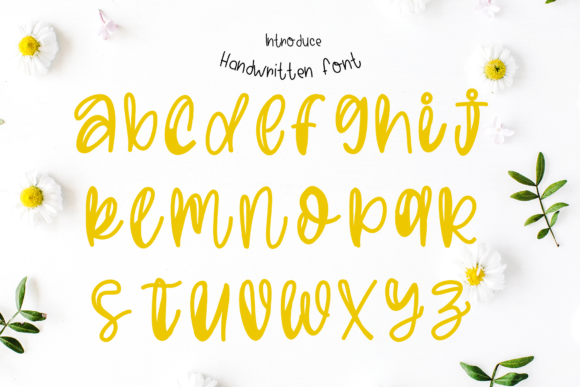 Introduce
Handwritten font
abcdefghij
klmnopqr
stuvwxyz